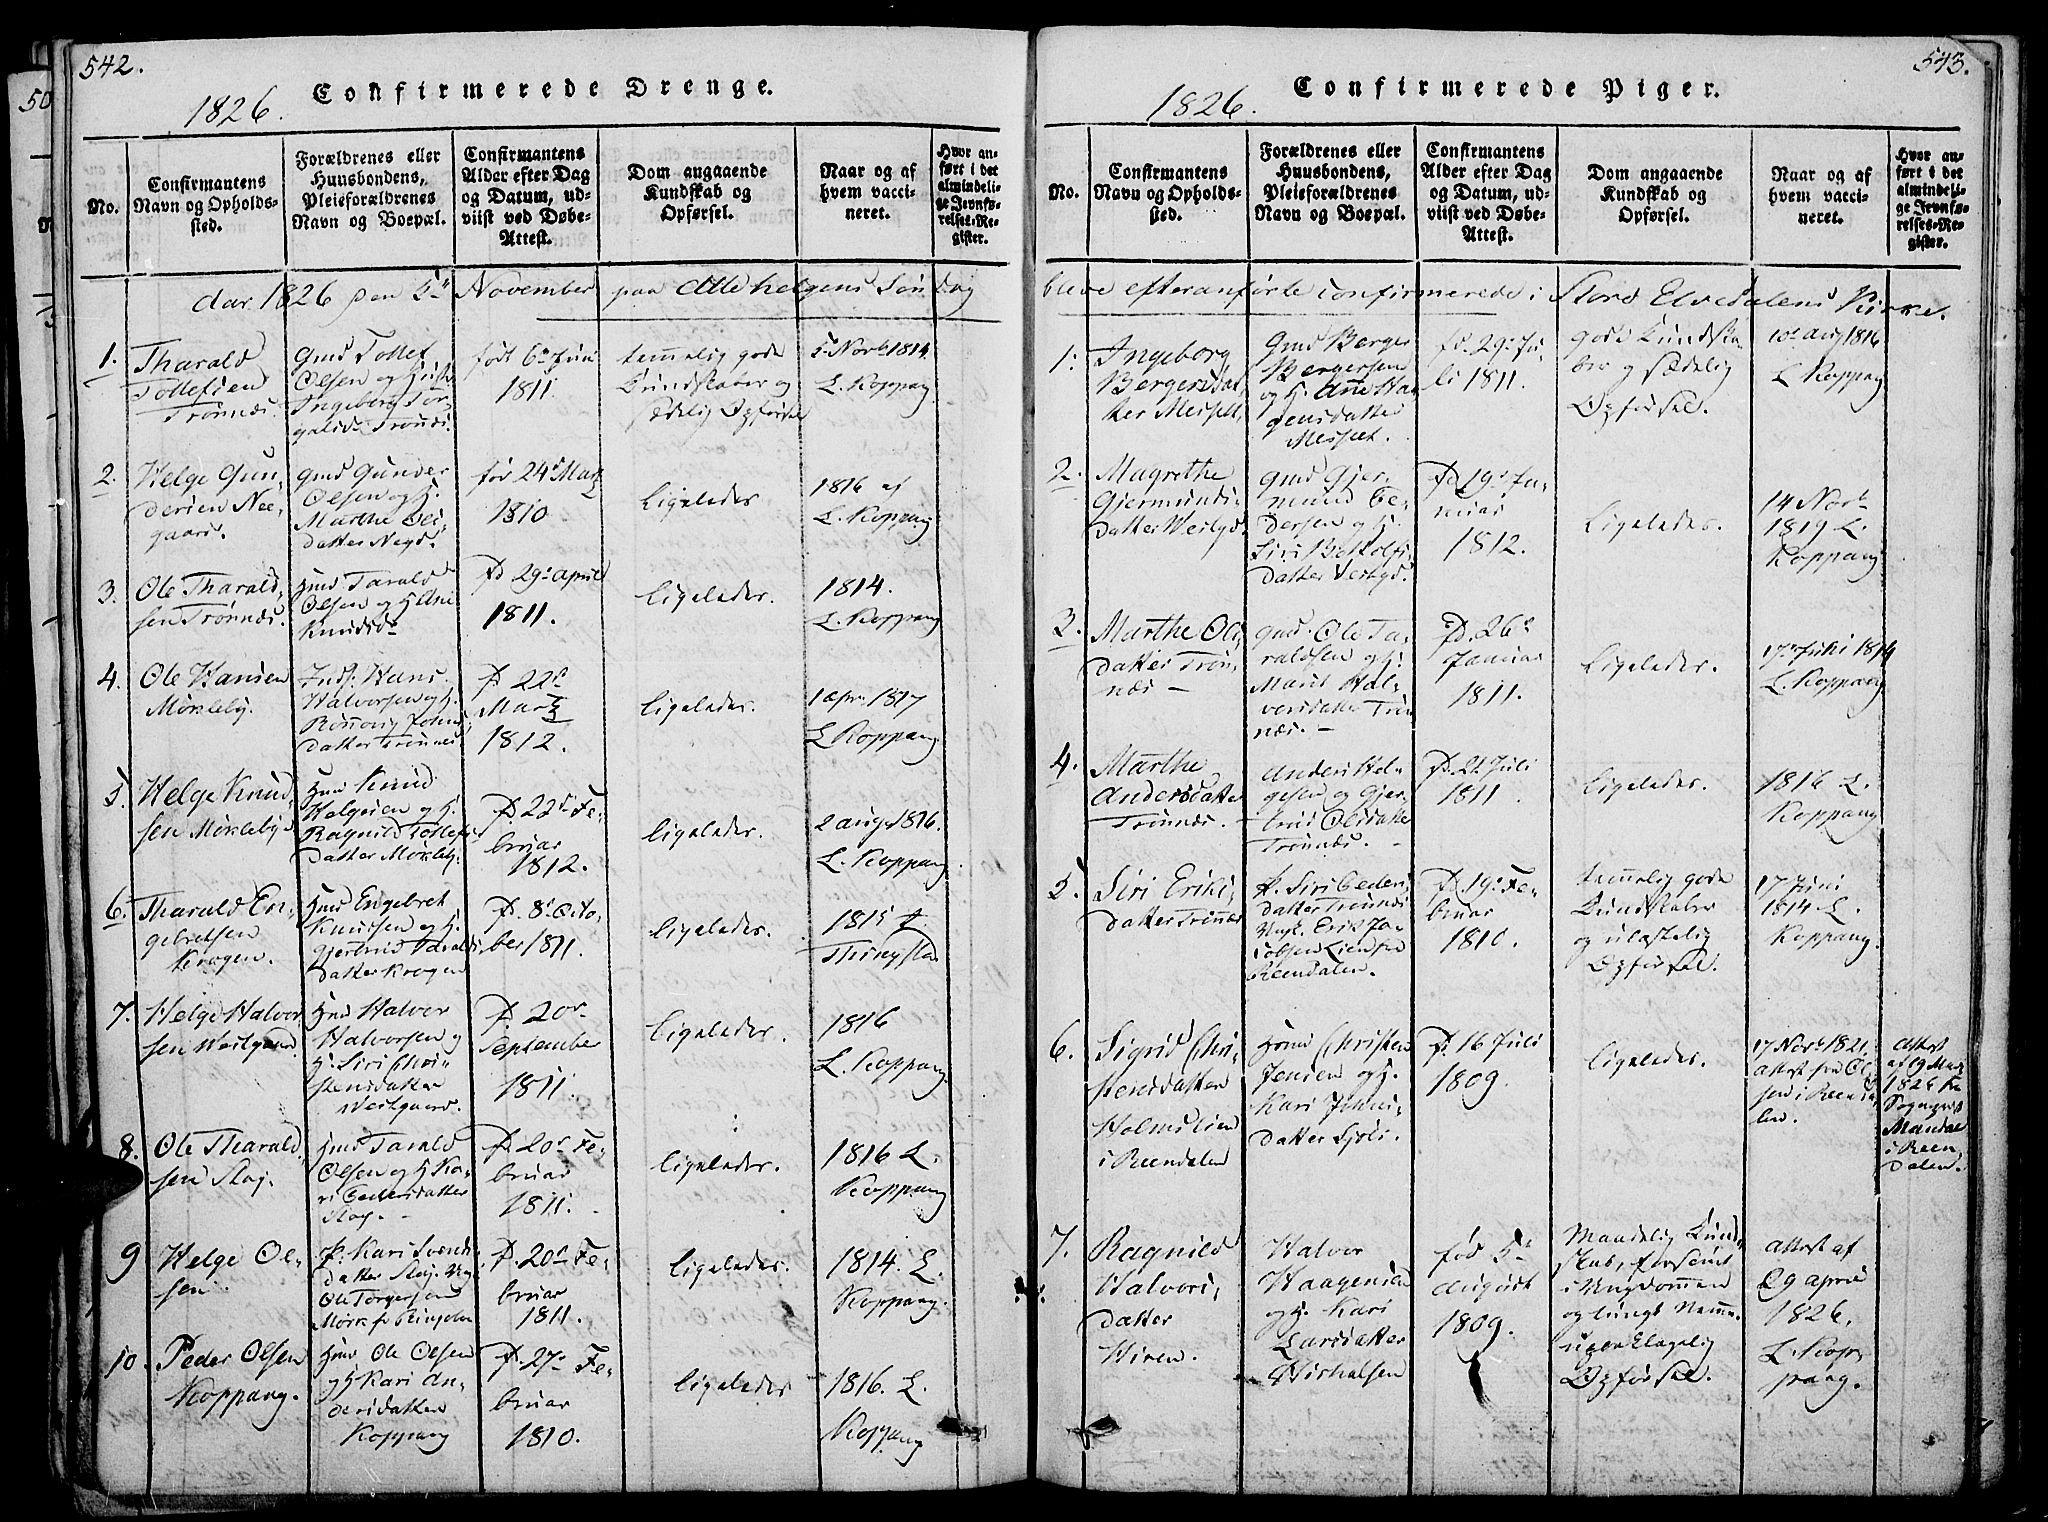 542.
Confirmerede Drenge.
1826.
No.
Confirmantens Navn og Opholds-sted.
Forældrenes eller Huusbondens, Pleieforældrenes Navn og Boepæl.
Confirmantens Alder efter Dag og Datum, ud-viist ved Døbe-Attest.
Dom angaaende Kundskab og Opførsel.
Naar og af hvem vacci-neret.
Hvor an-ført i det almindeli-ge Jevnfø-relses-Re-gister.
Aar 1826 den 5te November paa Alle helgens Søndag
1.
Tharald
Tollefsen
Trønnæs.
Gmd Tollef
Olsen og
Ingeborg
Trønæs.
født 6te Juni
1811.
temmelig gode
Kundskaber og
sædelig Opførsel
5 Novb 1814
L. Koppang
2.
Helge Gun-
dersen Nee-
gaard.
Gmd Gunder
Olsen og H.
Marthe
datter
før 24de Martz
1810
Ligeledes
1816 af
L. Koppang
3.
Ole Tharald-
sen Trønnæs.
Hmd Tarald
Olsen og H Ane
Knudsd.
Fd 29de April
1811.
Ligeledes.
1814.
L. Koppang
4.
Ole Hansen
Møkleby.
Hans
Halvorsen og H.
Rønnoug
datter Trønnes
F. 22de
Martz
1812.
Ligeledes.
1 Apr. 1817
L Koppang.
5.
Helge Knud-
sen Møkleby
Hmd Knud
Helgesen og H.
Ragnild Tollefs
datter Møkleby.
F. 22de Fe-
bruar
1812.
Ligeledes.
2 Aug. 1816.
L. Koppang
6.
Tharald En-
gebretsen
Krogen.
Hmd Engebret
Knudsen og H.
Gjertrud Taralds
datter Krogen
F. 8de Octo-
ber 1811.
Ligeledes.
1815
7.
Helge Halvor
sen Westgaard
Hmd Halvor
Halvorsen og
H. Siri Chri-
stensdatter
Westgaard.
F. 20de
September
1811.
Ligeledes.
1816
L. Koppang.
8.
Ole Tharald-
sen Staj.
Hmd Tarald
Olsen og H Ka-
ri Pedersdatter
Staj.
F. 20de Fe-
bruar
1811.
Ligeledes.
1816 L.
Koppang
9
Helge Ol-
sen
P. Kari Svends
datter Staj.
Ole Torgersen
Mørk
F. 20de Fe-
bruar
1811.
Ligeledes.
1814. L.
Koppang.
10.
Peder Olsen
Koppang.
Hmd Ole Olsen
og H Kari An-
dersdatter
Koppang
F. 27de Fe-
bruar
1810.
Ligeledes
1816. L.
Koppang
543.
Confirmerede Piger.
1826.
No.
Confirmantens Navn og Opholds-sted.
Forældrenes eller Huusbondens, Pleieforældrenes Navn og Boepæl.
Confirmantens Alder efter Dag og Datum, ud-viist ved Døbe-Attest.
Dom angaaende Kundskab og Opførsel.
Naar og af hvem vacci-neret.
Hvor an-ført i det almindeli-ge Jevnfø-relses-Re-gister.
bleve efteranførte confirmerede i Stord Elvedalens Kirke.
1.
Ingeborg
Bergersdat-
ter Messelt.
Gmd Berger
Bergersen
og H. Ane Haa-
gensdatter
Messelt.
fd. 29de Ju-
li 1811.
gode Kundska-
ber og sædelig
Opførsel.
10de Aug 1816
L Koppang
2.
Magrethe
Gjermunds-
datter Westgd
Gmd Gjer-
mund Pe-
dersen og H.
Siri Botolfs-
datter Vestgd.
Fd 19de Ja-
nuar
1812.
Ligeledes.
14 Novb
1819 L.
Koppang
3.
Marthe Ols-
datter Trøn-
næs
Gmd. Ole Ta-
raldsen og H.
Marit Hal-
vorsdatter Trøn
næs.
Fd. 26de
Januar
1811.
Ligeledes.
1814
L. Koppang
4.
Marthe
Andersdatter
Trønnæs.
Anders Hel-
gesen og Gjer-
trud Olsdatter
Trønnæs.
F. 21 Juli
1811.
Ligeledes.
1816 L.
Koppang
5.
Siri Eriks-
datter Trønnæs
P. Siri Peders
datter Trønnæs
Ungk. Erik Ja-
cobsen Lien fra
Reendalen.
F. 19de Fe-
bruar
1810.
temmelig gode
Kundskaber
og ulastelig
Opførsel.
17 Juni
1814 L.
Koppang.
6.
Sigrid Chri-
stensdatter
Holmslien
i Reendalen
Hmd Christen
Jensen og H.
Kari Johns-
datter
F. 16 Juli
1809.
Ligeledes.
17 Novb 1821.
Attest fra Ol-
sen i Reenda-
len.
Attest
af 19 Mai
1826 fra
Sognepræst
Mandal
i Reen
dalen.
7.
Ragnild
Halvors-
datter
Hiren.
Halvor
Haagensen
og H. Kari
Larsdatter
født 5te
August
1809.
Maadelig Kund-
skab, forsømt
i Ungdommen
og tungt Nemme.
Opførsel.
Attest af
29 April
1826.
L. Kop-
pang.